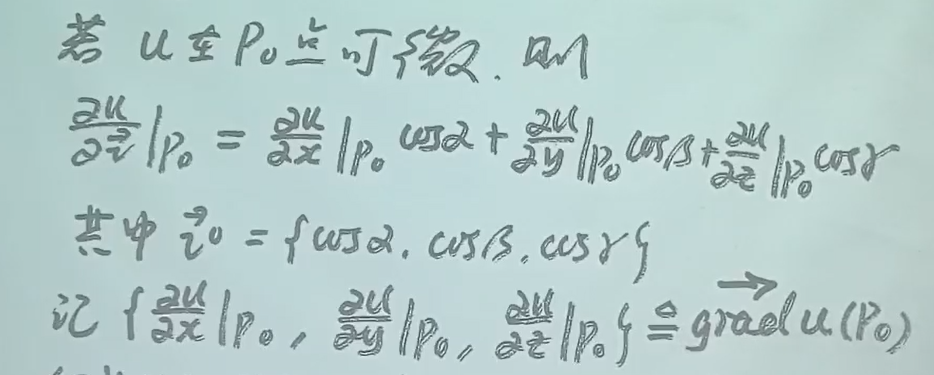 若 u 在 P₀ 点可微. 则
∂u/∂l⃗|P₀ = ∂u/∂x|P₀ cosα + ∂u/∂y|P₀ cosβ + ∂u/∂z|P₀ cosγ
其中 l⃗⁰ = {cosα, cosβ, cosγ}
记 {∂u/∂x|P₀, ∂u/∂y|P₀, ∂u/∂z|P₀} ≙ grad⃗ u(P₀)